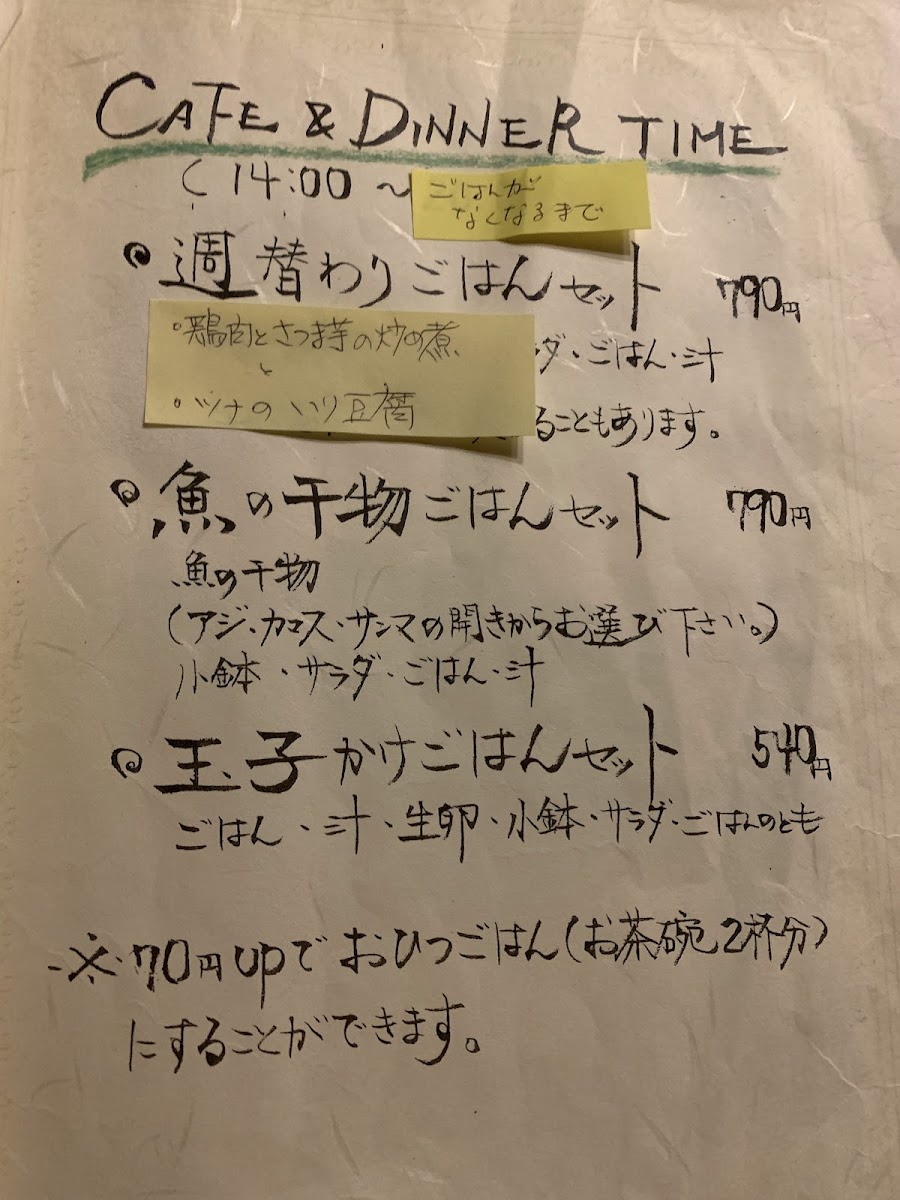 CAFE & DINNER TIME
(14:00 ~ ごはんが
なくなるまで
週替わりごはんセット 790円
・鶏肉とさつま芋の炒め煮
と
・ツナのいり豆腐
ダ・ごはん・汁
ることもあります。
魚の干物ごはんセット 790円
魚の干物
(アジ・カマス・サンマの開きからお選び下さい。)
小鉢・サラダ・ごはん・汁
玉子かけごはんセット 540円
ごはん・汁・生卵・小鉢・サラダ・ごはんのとも
※70円upでおひつごはん(お茶碗2杯分)
にすることができます。